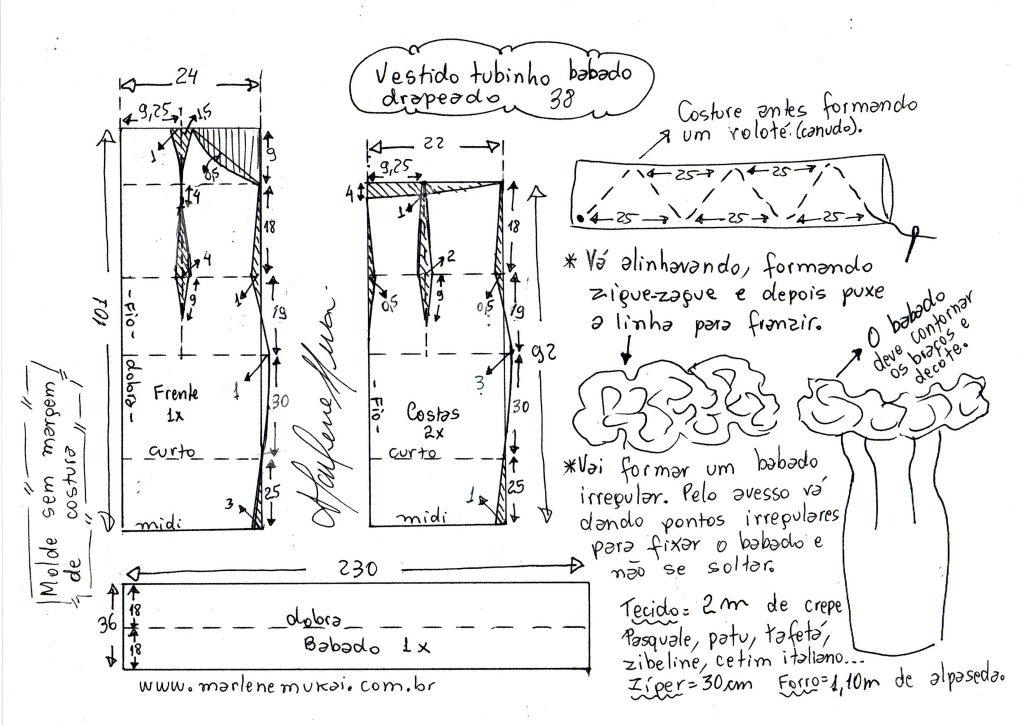 Vestido tubinho babado
drapeado 38
24
9,25
1,5
1
0,5
9
4
18
4
1
9
19
101
- Fio - dobra -
Frente
1x
1
30
curto
25
3
midi
Molde sem margem
de costura
Marlene Mukai.
22
9,25
4
1
18
2
9
0,5
0,5
19
92
3
- Fio -
Costas
2x
30
curto
1
25
midi
230
36
18
18
dobra
Babado 1x
www.marlenemukai.com.br
Costure antes formando
um roloté (canudo).
25 25
25 25 25
* Vá alinhavando, formando
zigue-zague e depois puxe
a linha para franzir.
O babado
deve contornar
os braços e
decote.
*Vai formar um babado
irregular. Pelo avesso vá
dando pontos irregulares
para fixar o babado e
não se soltar.
Tecido= 2m de crepe
Pasquale, patu, tafetá,
zibeline, cetim italiano...
Zíper= 30cm Forro=1,10m de alpaseda.